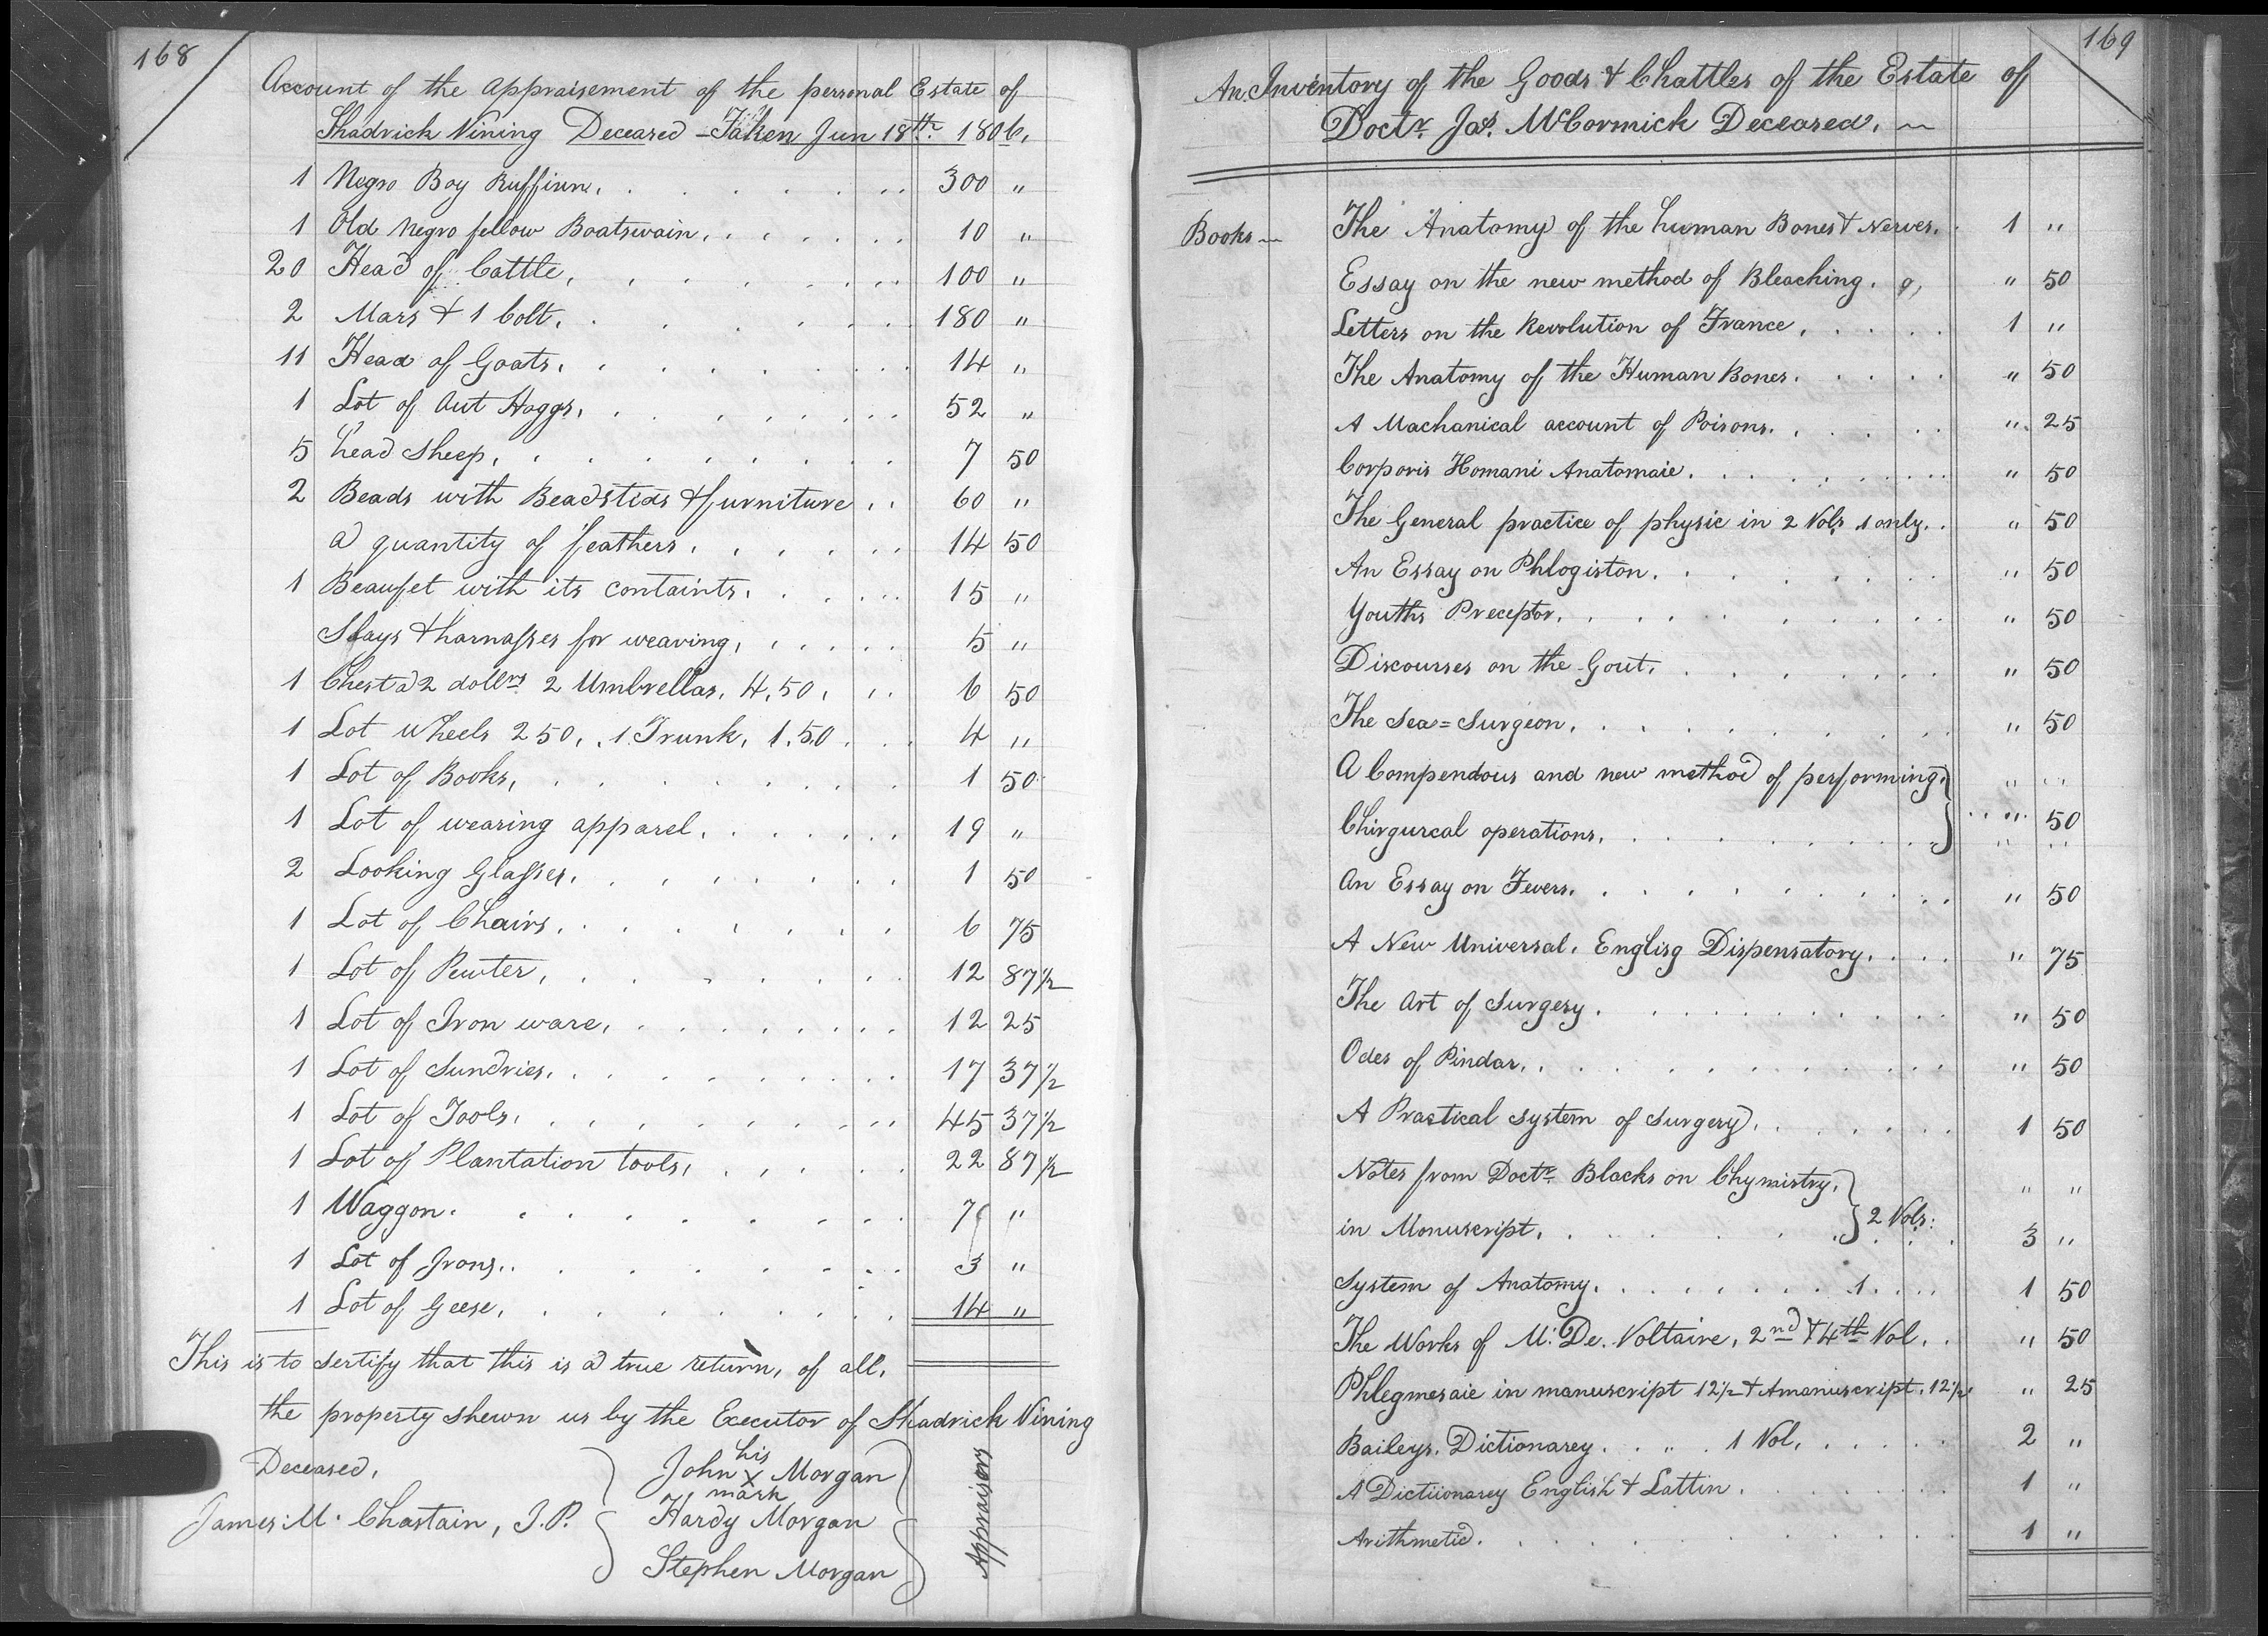 168
Account of the Appraisement of the personal Estate of
Shadrick Vining Deceased - Taken Jun 18th. 1806,
1 Negro Boy Ruffinn, 300 "
1 Old Negro fellow Boatswain, 10 "
20 Head of Cattle, 100 "
2 Mars & 1 Colt, 180 "
11 Head of Goats, 14 "
1 Lot of Out Hoggs, 52 "
5 head Sheep, 7 50
2 Beads with Beadstids & furniture 60 "
a quantity of feathers, 14 50
1 Beaufet with its containts, 15 "
Slays & harnasses for weaving, 5 "
1 Chest a 2 dollrs 2 Umbrellas, 4,50, 6 50
1 Lot Wheels 250, 1 Trunk, 1,50 4 "
1 Lot of Books, 1 50
1 Lot of wearing apparel, 19 "
2 Looking Glasses, 1 50
1 Lot of Chairs, 6 75
1 Lot of Pewter, 12 87½
1 Lot of Iron ware, 12 25
1 Lot of Sundries, 17 37½
1 Lot of Tools, 45 37½
1 Lot of Plantation tools, 22 87½
1 Waggon. 7 "
1 Lot of Irons, 3 "
1 Lot of Geese, 14 "
This is to sertify that this is a true return, of all,
the property shewn us by the Executor of Shadrick Vining
Deceased,
James M. Chastain, J.P.
John his X mark Morgan
Hardy Morgan
Stephen Morgan
Appraisors
169
An Inventory of the Goods & Chattles of the Estate of
Doctr. Jas. McCormick Deceased,
Books The Anatomy of the human Bones & Nerves, 1 "
Essay on the new method of Bleaching. " 50
Letters on the Revolution of France, 1 "
The Anatomy of the Human Bones. " 50
A Machanical account of Poisons. " 25
Corporis Homani Anatomaie. " 50
The General practice of physic in 2 Vols 1 only. " 50
An Essay on Phlogiston. " 50
Youths Preceptor. " 50
Discourses on the Gout. " 50
The Sea=Surgeon. " 50
A Compendous and new method of performing " "
Chirgurcal operations. " 50
An Essay on Fevers. " 50
A New Universal. Englisg Dispensatory. " 75
The Art of Surgery. " 50
Odes of Pindar. " 50
A Practical System of Surgery. 1 50
Notes from Doctr. Blacks on Chymistry, " "
in Monuscript. 2 Vols: 3 "
System of Anatomy. 1 1 50
The Works of M. De. Voltaire, 2nd & 4th Vol. " 50
Phlegmesaie in manuscript 12½ & Amanuscript, 12½ " 25
Baileys, Dictionarey 1 Vol, 2 "
A Dictiionarey English & Lattin. 1 "
Arithmetic. 1 "